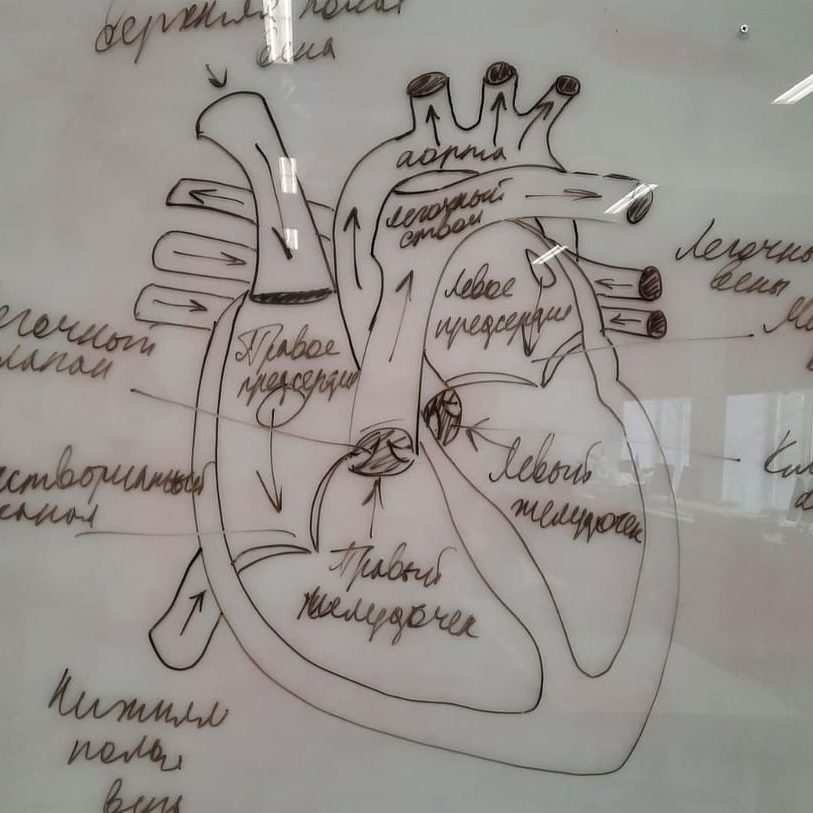 верхняя полая
вена
аорта
легочный
ствол
Легочны
вены
левое
предсердие
Правое
предсердие
егочный
лапан
Левый
желудочек
створчатый
Кла
Правый
желудочек
Нижняя
полая
вена